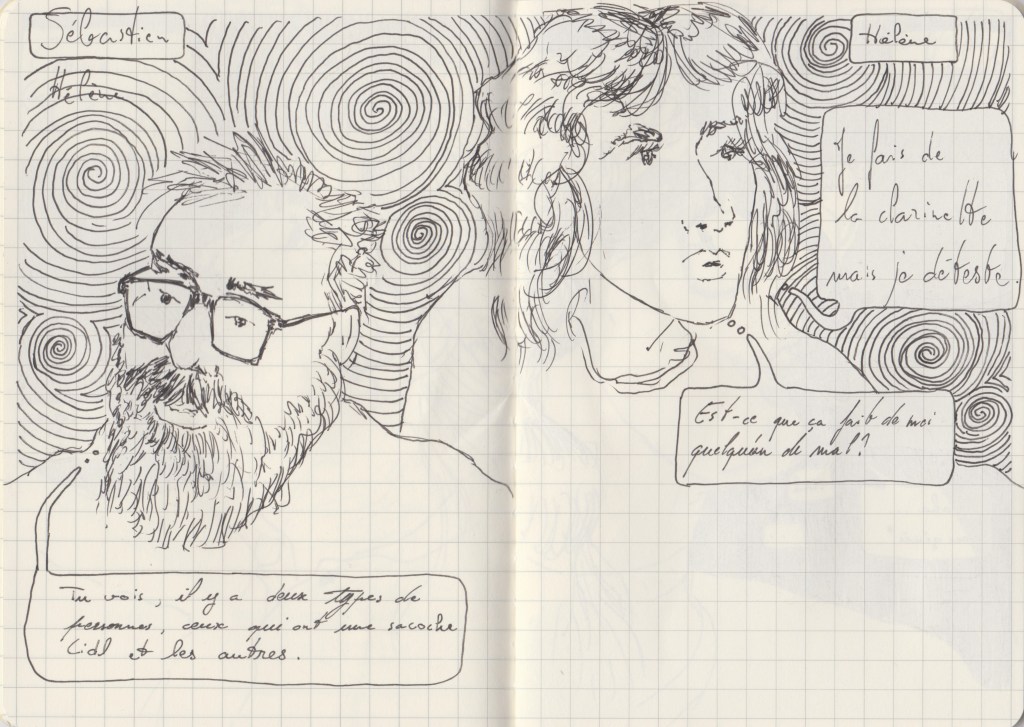 Sébastien
Hélène
Tu vois, il y a deux types de
personnes, ceux qui ont une sacoche
Lidl et les autres.
Hélène
Je fais de
la clarinette
mais je déteste.
Est-ce que ça fait de moi
quelqu'un de mal?